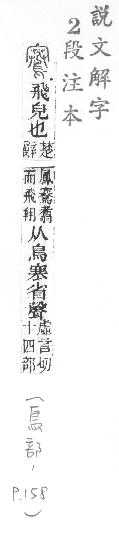 説文解字
2段注本
鶱飛皃也楚辭鳳鶱翥而飛翔从鳥寒省聲虛言切十四部
(鳥部, P.158)